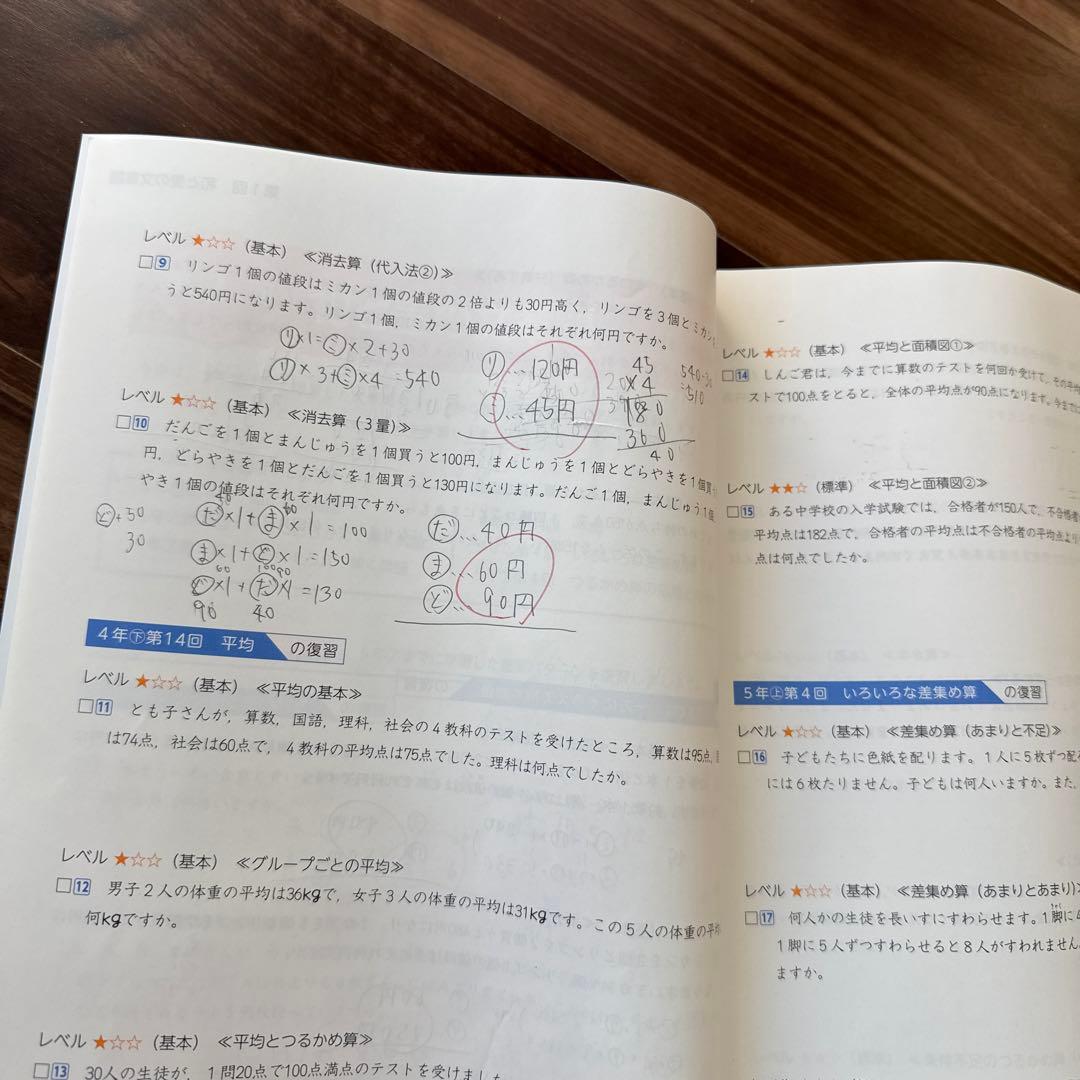 レベル ★☆☆（基本） ≪消去算（代入法②）≫
□9 リンゴ１個の値段はミカン１個の値段の２倍よりも30円高く，リンゴを３個とミカン
うと540円になります。リンゴ１個，ミカン１個の値段はそれぞれ何円ですか。
リ×1=ミ×2+30
リ×3+ミ×4=540
リ…120円
ミ…45円
45
×4
180
360
540-30
=510
レベル ★☆☆（基本） ≪消去算（３量）≫
□10 だんごを１個とまんじゅうを１個買うと100円，まんじゅうを１個とどらやきを１個買
円，どらやきを１個とだんごを１個買うと130円になります。だんご１個，まんじゅう１個
やき１個の値段はそれぞれ何円ですか。
だ×1+ま×1=100
ま×1+ど×1=150
ど×1+だ×1=130
90 40
だ…40円
ま…60円
ど…90円
４年下第14回 平均 の復習
レベル ★☆☆（基本） ≪平均の基本≫
□11 とも子さんが，算数，国語，理科，社会の４教科のテストを受けたところ，算数は95点，
は74点，社会は60点で，４教科の平均点は75点でした。理科は何点でしたか。
レベル ★☆☆（基本） ≪グループごとの平均≫
□12 男子２人の体重の平均は36kgで，女子３人の体重の平均は31kgです。この５人の体重の平均
何kgですか。
レベル ★☆☆（基本） ≪平均とつるかめ算≫
□13 30人の生徒が，１問20点で100点満点のテストを受けました
レベル ★☆☆（基本） ≪平均と面積図①≫
□14 しんご君は，今までに算数のテストを何回か受けて，その平均
ストで100点をとると，全体の平均点が90点になります。今まで
レベル ★★☆（標準） ≪平均と面積図②≫
□15 ある中学校の入学試験では，合格者が150人で，不合格者
平均点は182点で，合格者の平均点は不合格者の平均点より
点は何点でしたか。
５年上第４回 いろいろな差集め算 の復習
レベル ★☆☆（基本） ≪差集め算（あまりと不足）≫
□16 子どもたちに色紙を配ります。１人に５枚ずつ配
には６枚たりません。子どもは何人いますか。また，
レベル ★☆☆（基本） ≪差集め算（あまりとあまり）≫
□17 何人かの生徒を長いすにすわらせます。１脚に４
１脚に５人ずつすわらせると８人がすわれません。
ますか。